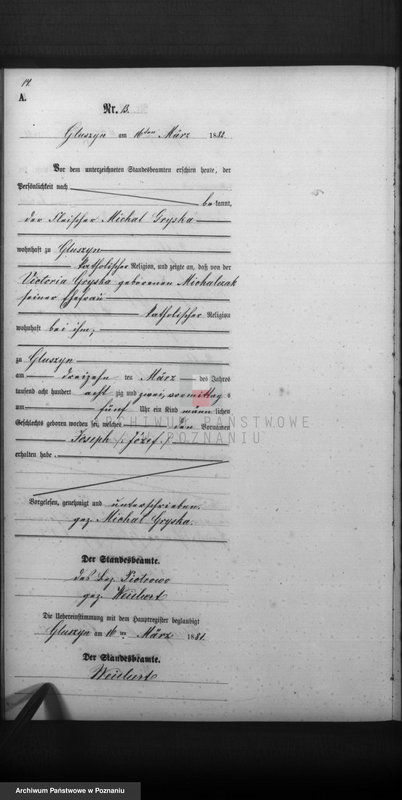 14.
A.
Nr. 13.
Gluszyn am 16ten März 1882.
Vor dem unterzeichneten Standesbeamten erschien heute, der
Persönlichkeit nach
bekannt,
der Fleischer Michal Gryska
wohnhaft zu Gluszyn
katholischer Religion, und zeigte an, daß von der
Victoria Gryska geborenen Michalak
seiner Ehefrau
katholischer Religion
wohnhaft bei ihm,
zu Gluszyn
am dreizehn ten März des Jahres
tausend acht hundert acht zig und zwei, vormittag s
um fünf Uhr ein Kind männ lichen
Geschlechts geboren worden sei, welches den Vornamen
Joseph /: Józef :/
erhalten habe.
Vorgelesen, genehmigt und unterschrieben.
gez. Michal Gryska.
Der Standesbeamte.
des Bez. Piotrowo
gez.
Die Uebereinstimmung mit dem Hauptregister beglaubigt
Gluszyn am 16 ten März 188
Der Standesbeamte.
ARCHIWUM PAŃSTWOWE
W POZNANIU
Archiwum Państwowe w Poznaniu